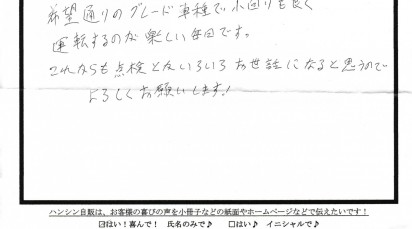 希望通りのグレード車種で、小回りも良く
運転するのが楽しい毎日です。
これからも点検といろいろお世話になると思うので
よろしくお願いします!
ハンシン自販は、お客様の喜びの声を小冊子などの紙面やホームページなどで伝えたいです!
☑はい!喜んで! 氏名のみで♪ □はい♪ イニシャルで♪